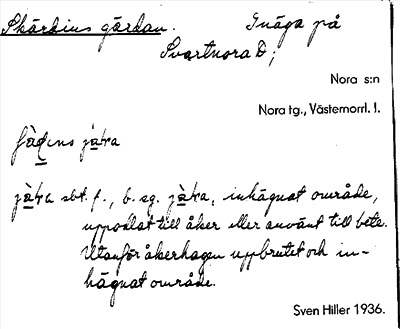 Skärbins gärdan. Inäga på
Svartnora D;
Nora s:n
Nora tg., Västernorrl. l.
jàra sbt. f., b. sg. jàra, inhägnat område,
uppodlat till åker eller använt till bete.
Utanför åkerhagen uppbrutet och in-
hägnat område.
Sven Hiller 1936.